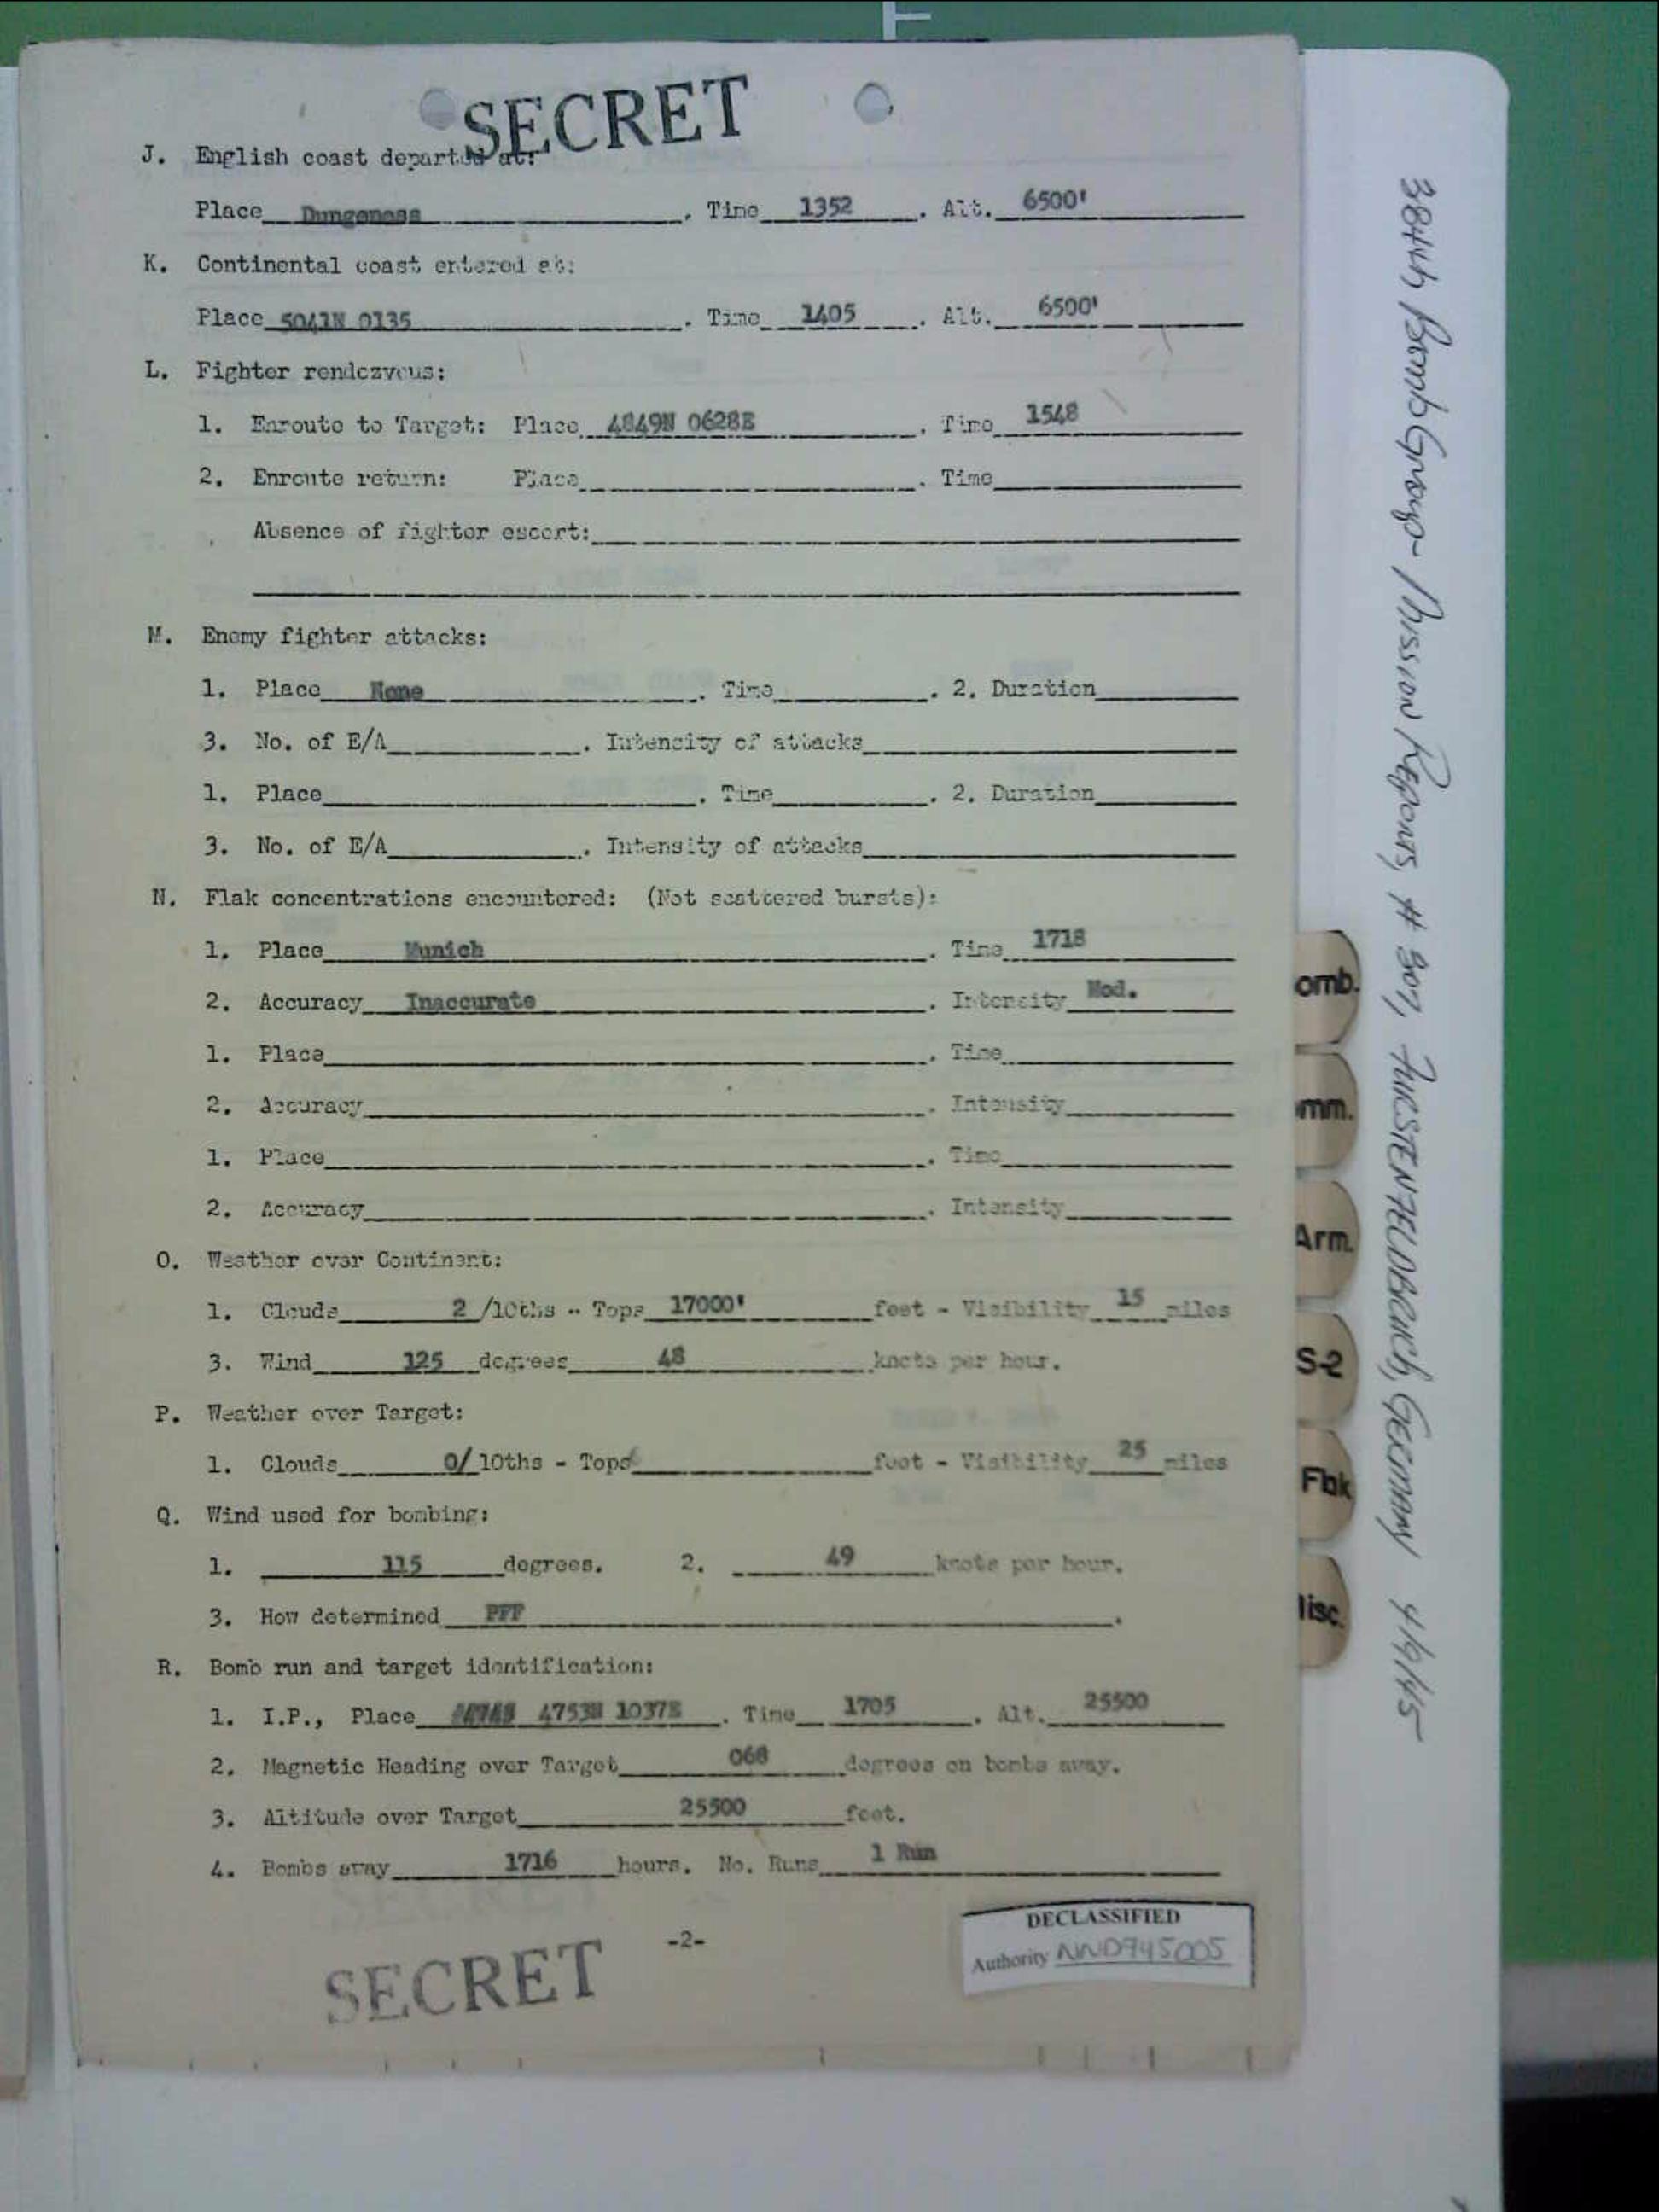 SECRET
J. English coast departed at:
Place Dungeness . Time 1352 . Alt. 6500'
K. Continental coast entered at:
Place 5041N 0135 . Time 1405 . Alt. 6500'
L. Fighter rendezvous:
1. Enroute to Target: Place 4849N 0628E . Time 1548
2. Enroute return: Place . Time
Absence of fighter escort:
M. Enemy fighter attacks:
1. Place None . Time . 2. Duration
3. No. of E/A . Intensity of attacks
1. Place . Time . 2. Duration
3. No. of E/A . Intensity of attacks
N. Flak concentrations encountered: (Not scattered bursts):
1. Place Munich . Time 1718
2. Accuracy Inaccurate . Intensity Mod.
1. Place . Time
2. Accuracy . Intensity
1. Place . Time
2. Accuracy . Intensity
O. Weather over Continent:
1. Clouds 2 /10ths - Tops 17000' feet - Visibility 15 miles
3. Wind 125 degrees 48 knots per hour.
P. Weather over Target:
1. Clouds 0/ 10ths - Tops feet - Visibility 25 miles
Q. Wind used for bombing:
1. 115 degrees. 2. 49 knots per hour.
3. How determined PFF .
R. Bomb run and target identification:
1. I.P., Place 4753N 1037E . Time 1705 . Alt. 25500
2. Magnetic Heading over Target 068 degrees on bombs away.
3. Altitude over Target 25500 feet.
4. Bombs away 1716 hours. No. Runs 1 Run
-2-
SECRET
DECLASSIFIED
Authority NND745005
omb.
mm.
Arm.
S-2
Fbk
lisc.
384th Bomb Group - Mission Reports, # 307, FURSTENFELDBRUCH, GERMANY 4/9/45